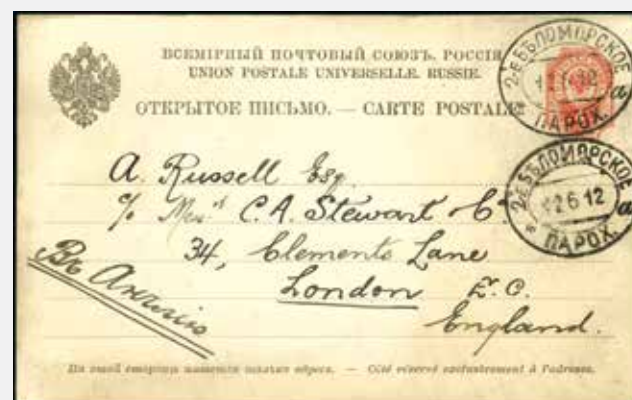 ВСЕМІРНЫЙ ПОЧТОВЫЙ СОЮЗЪ. РОССІЯ
UNION POSTALE UNIVERSELLE. RUSSIE.
ОТКРЫТОЕ ПИСЬМО. — CARTE POSTALE
2-Е БѢЛОМОРСКОЕ
а
* ПАРОХ.
2-Е БѢЛОМОРСКОЕ
12 6 12
а
* ПАРОХ.
A. Russell Esq.
c/o Messrs C. A. Stewart & Co
34, Clements Lane
London E.C.
England.
Въ Англію
На этой сторонѣ пишется только адресъ. — Côté réservé exclusivement à l'adresse.